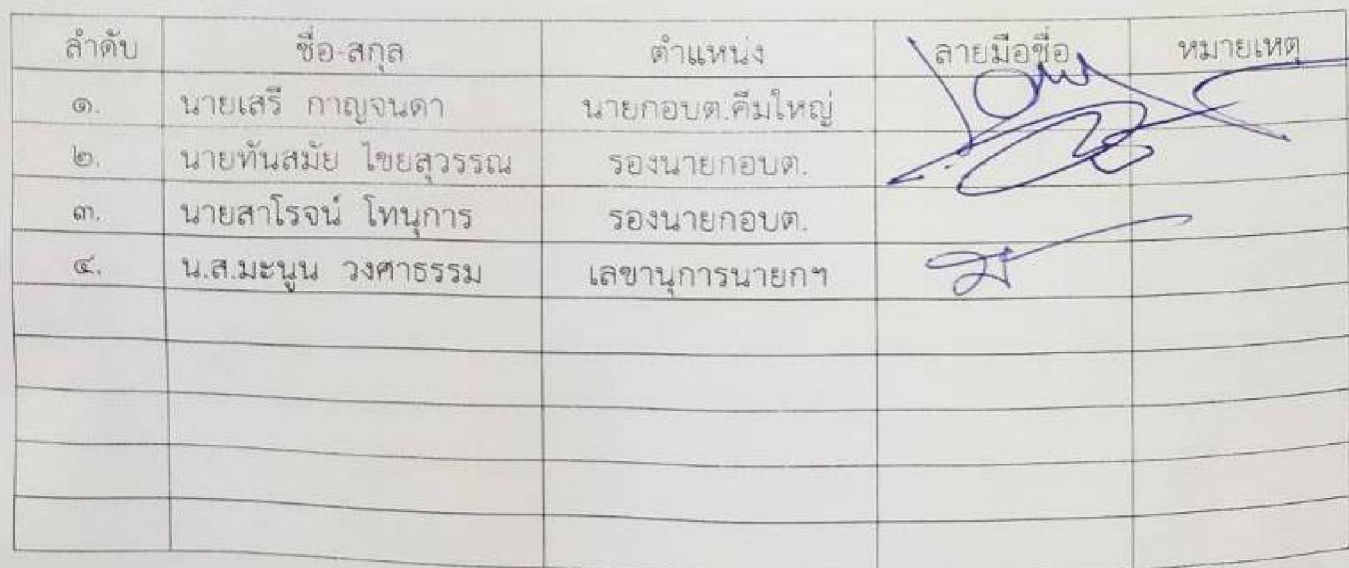 ลำดับ ชื่อ-สกุล ตำแหน่ง ลายมือชื่อ หมายเหตุ
๑. นายเสรี กาญจนดา นายกอบต.คึมใหญ่
๒. นายทันสมัย ไขยสุวรรณ รองนายกอบต.
๓. นายสาโรจน์ โทนุการ รองนายกอบต.
๔. น.ส.มะนูน วงศาธรรม เลขานุการนายกฯ